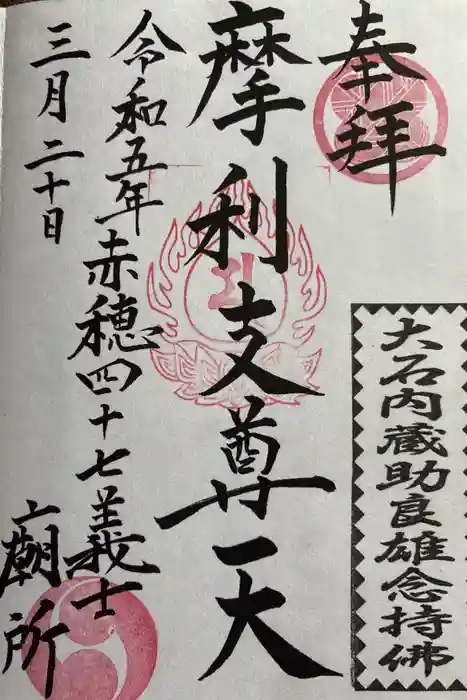 奉拝
大石内蔵助良雄念持佛
摩利支尊天
赤穂四十七義士
廟所
令和五年
三月二十日